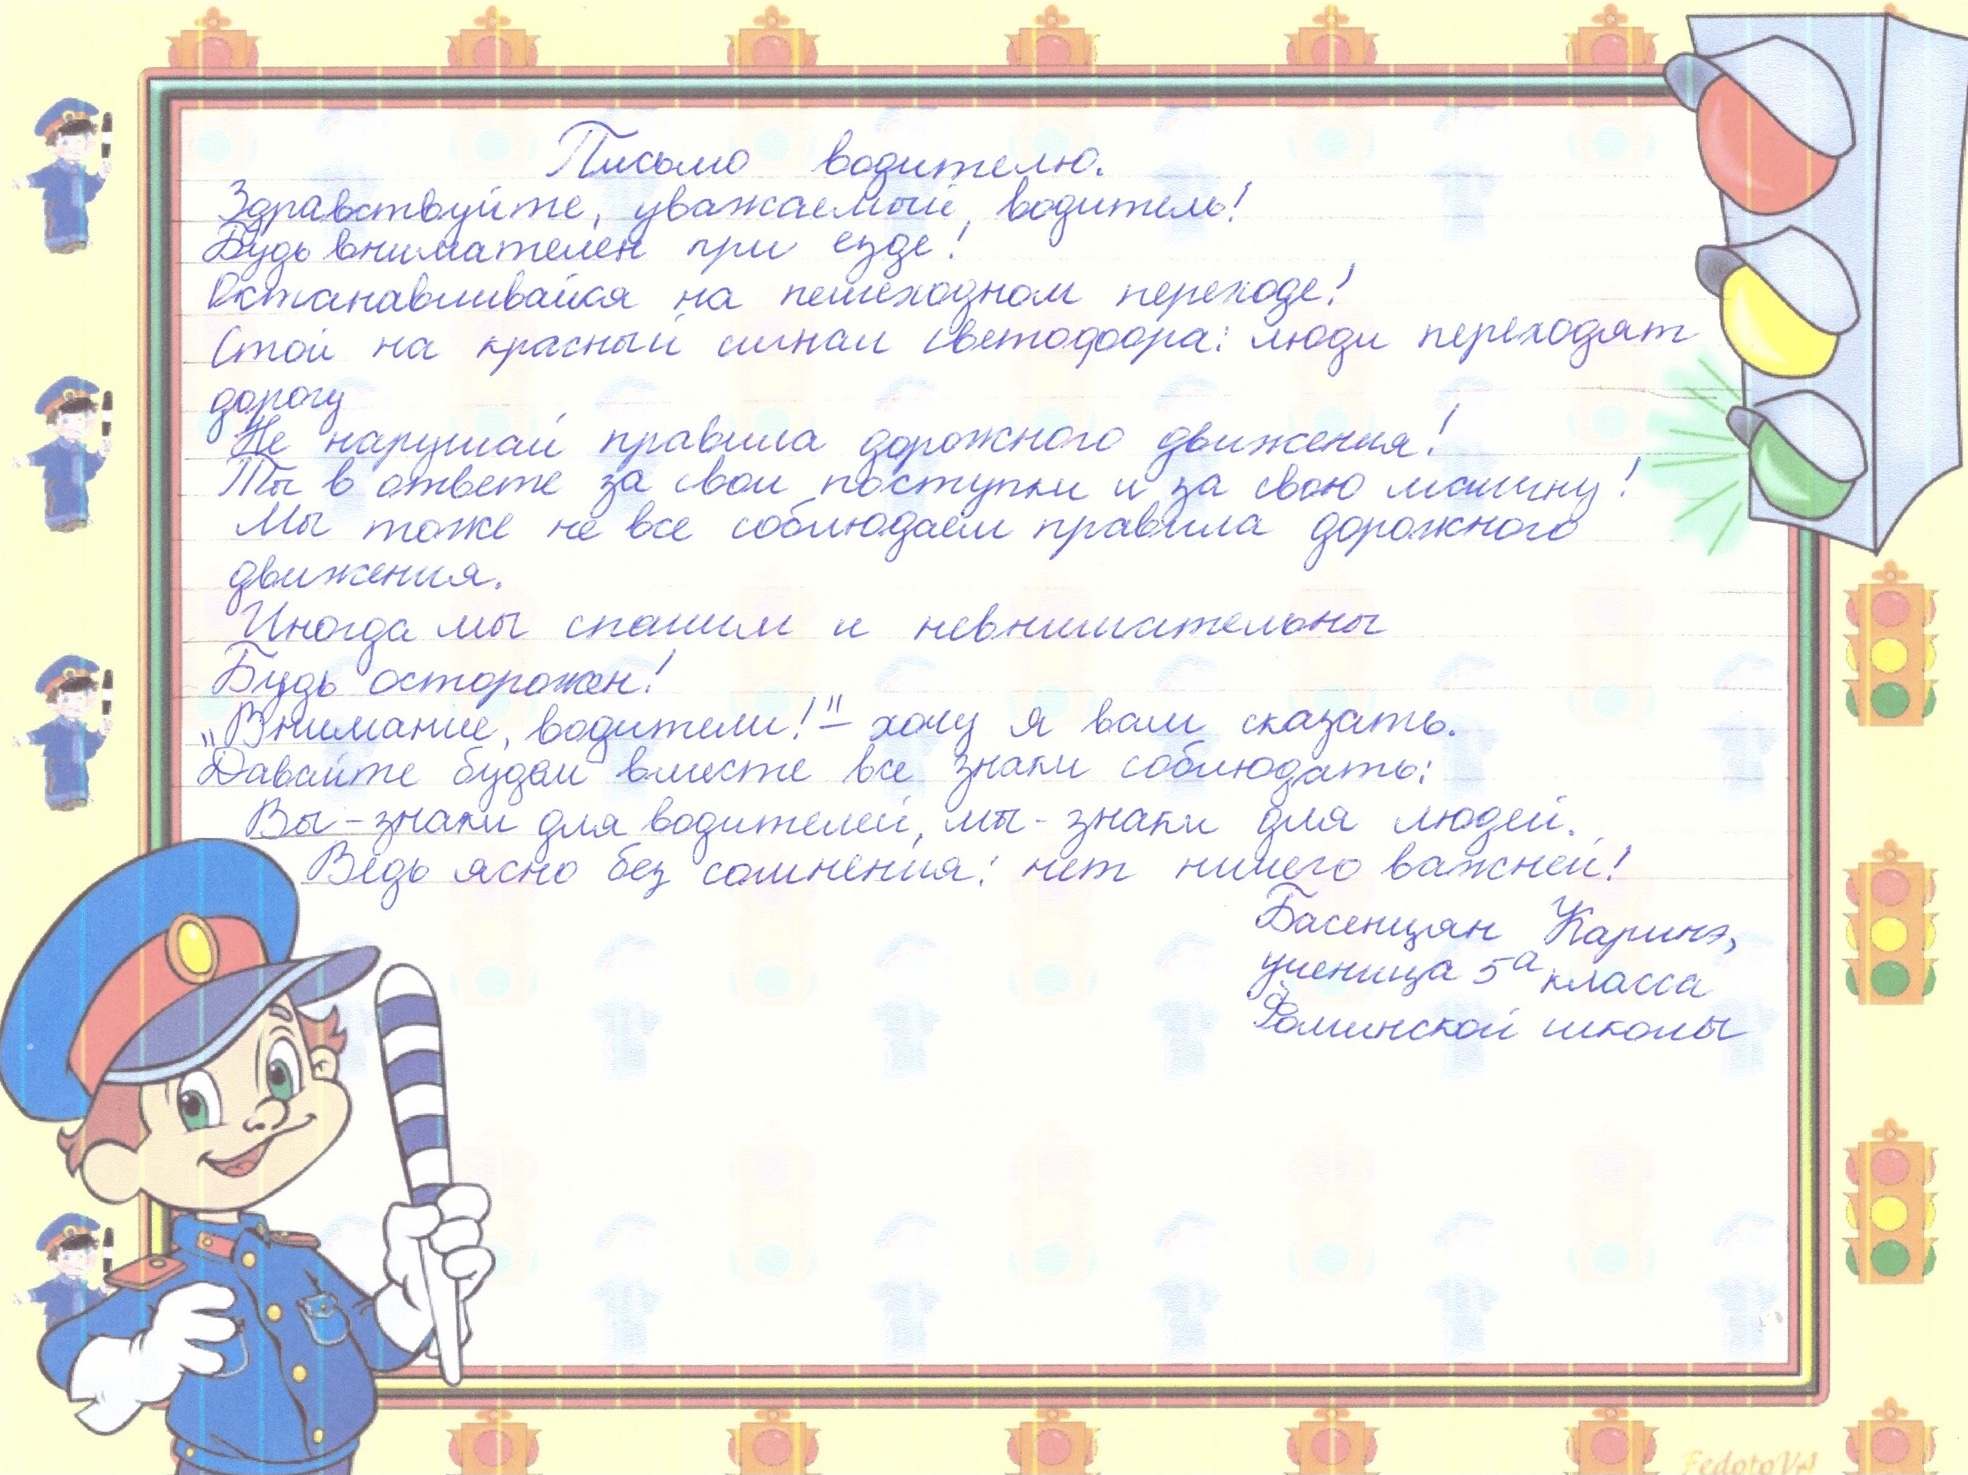 Письмо водителю.
Здравствуйте, уважаемый, водитель!
Будь внимателен при езде!
Останавливайся на пешеходном переходе!
Стой на красный сигнал светофора: люди переходят
дорогу
Не нарушай правила дорожного движения!
Ты в ответе за свои поступки и за свою машину!
Мы тоже не все соблюдаем правила дорожного
движения.
Иногда мы спешим и невнимательны
Будь осторожен!
„Внимание, водители!" – хочу я вам сказать.
Давайте будем вместе все знаки соблюдать:
Вы - знаки для водителей, мы - знаки для людей.
Ведь ясно без сомнения: нет ничего важней!
Басенцян Каринэ,
ученица 5а класса
Фоминской школы
FedotoVA